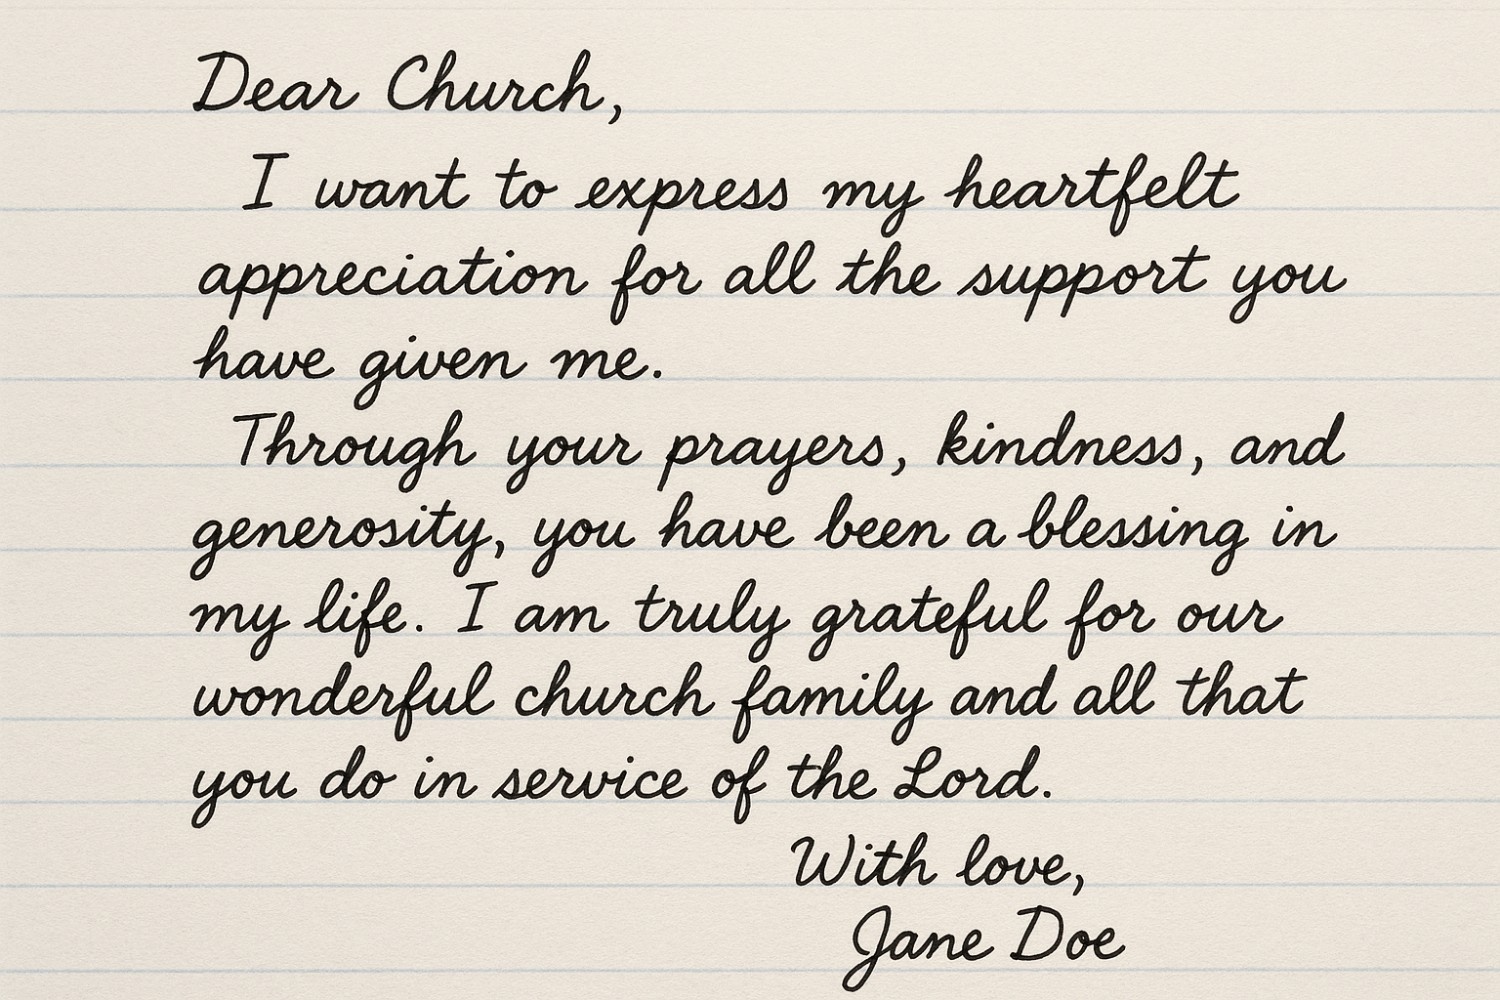 Dear Church,
I want to express my heartfelt
appreciation for all the support you
have given me.
Through your prayers, kindness, and
generosity, you have been a blessing in
my life. I am truly grateful for our
wonderful church family and all that
you do in service of the Lord.
With love,
Jane Doe